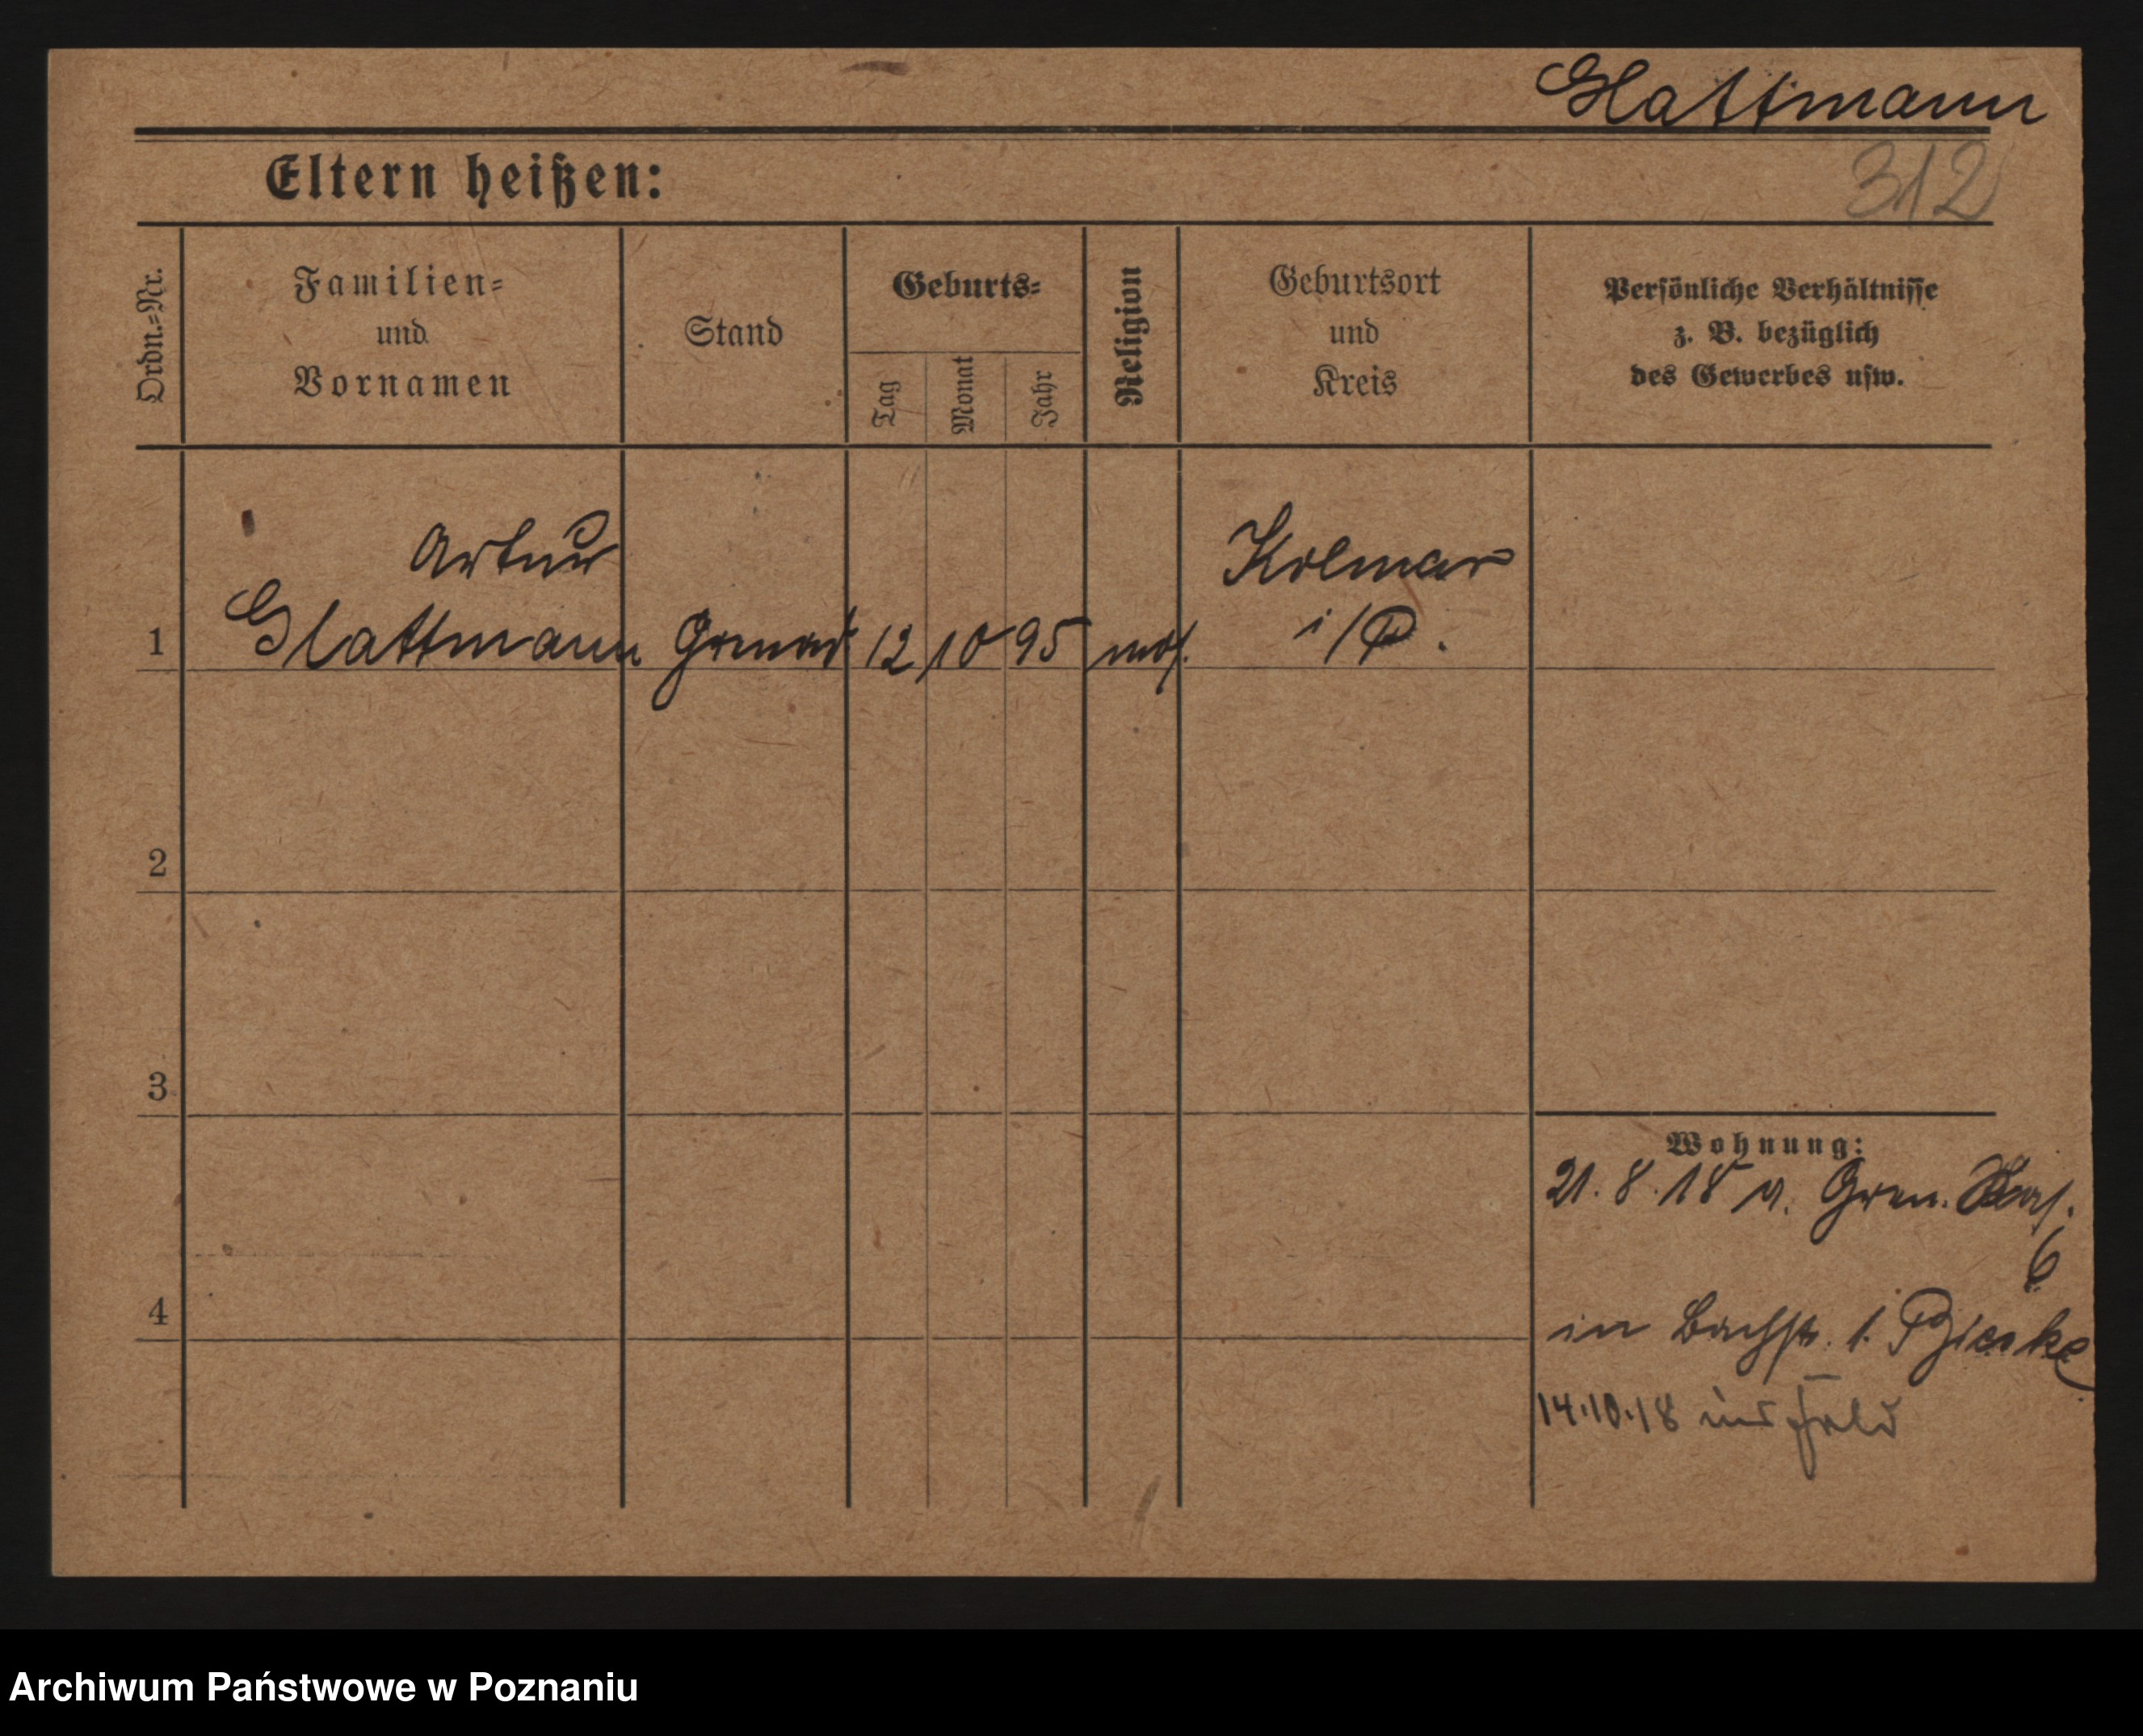 Glattmann
Eltern heißen:
312
Ordn.=Nr.
Familien=
und
Vornamen
Stand
Geburts=
Tag
Monat
Jahr
Religion
Geburtsort
und
Kreis
Persönliche Verhältnisse
z. B. bezüglich
des Gewerbes usw.
Artur
Kolmar
1 Glattmann Grenad. 12 10 95 mos. i/P.
2
3
Wohnung:
21. 8. 18 v. Gren. Kas.
6
4
in Bachstr. 1.
14.10.18 ins Feld
Archiwum Państwowe w Poznaniu